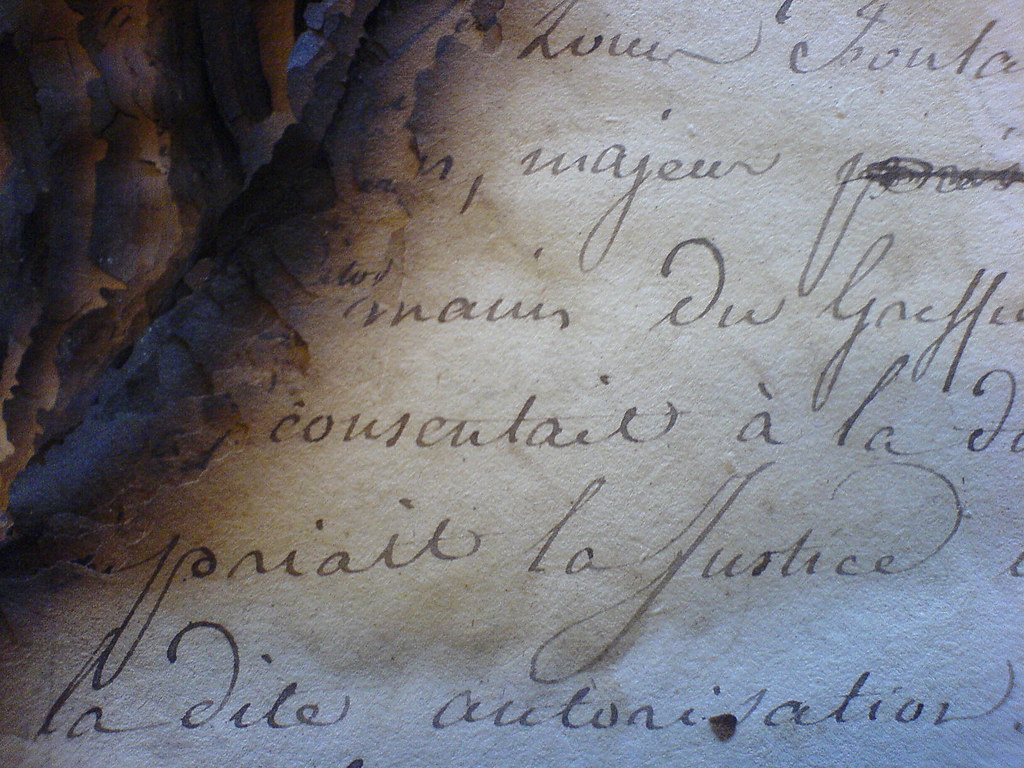 Louis Fonta
n, majeur
main du Greffi
consentait à la d
priait la Justice
la dite autorisation.